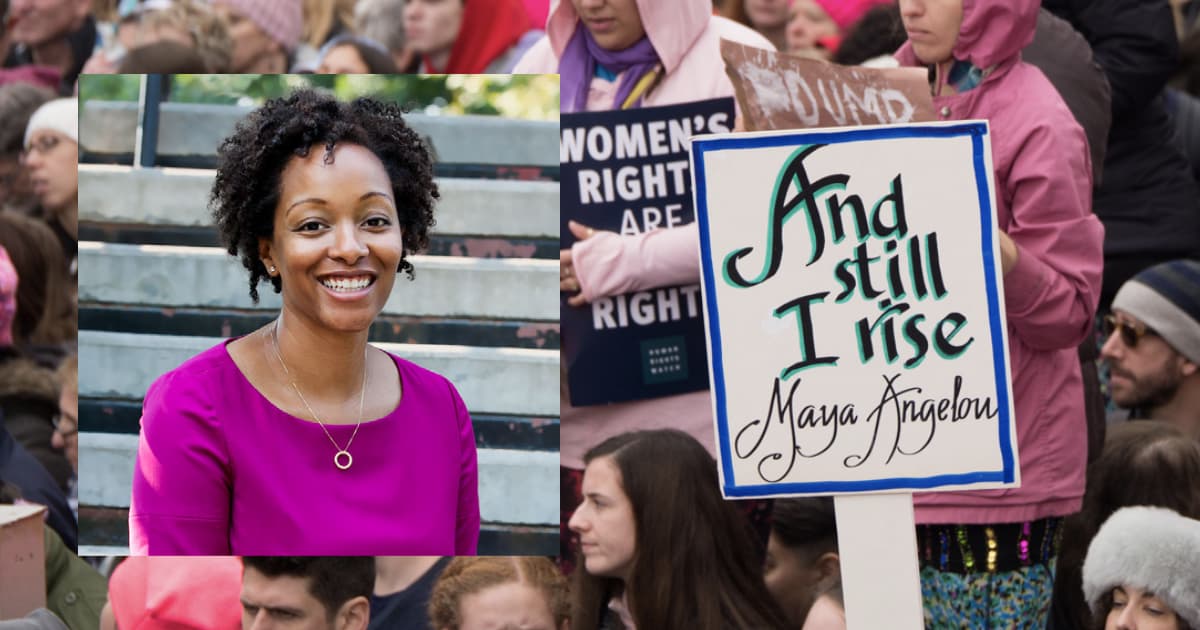 DUMP
WOMEN'S
RIGHT
ARE
RIGHT
HUMAN
RIGHTS
WATCH
And
still
I rise
Maya Angelou